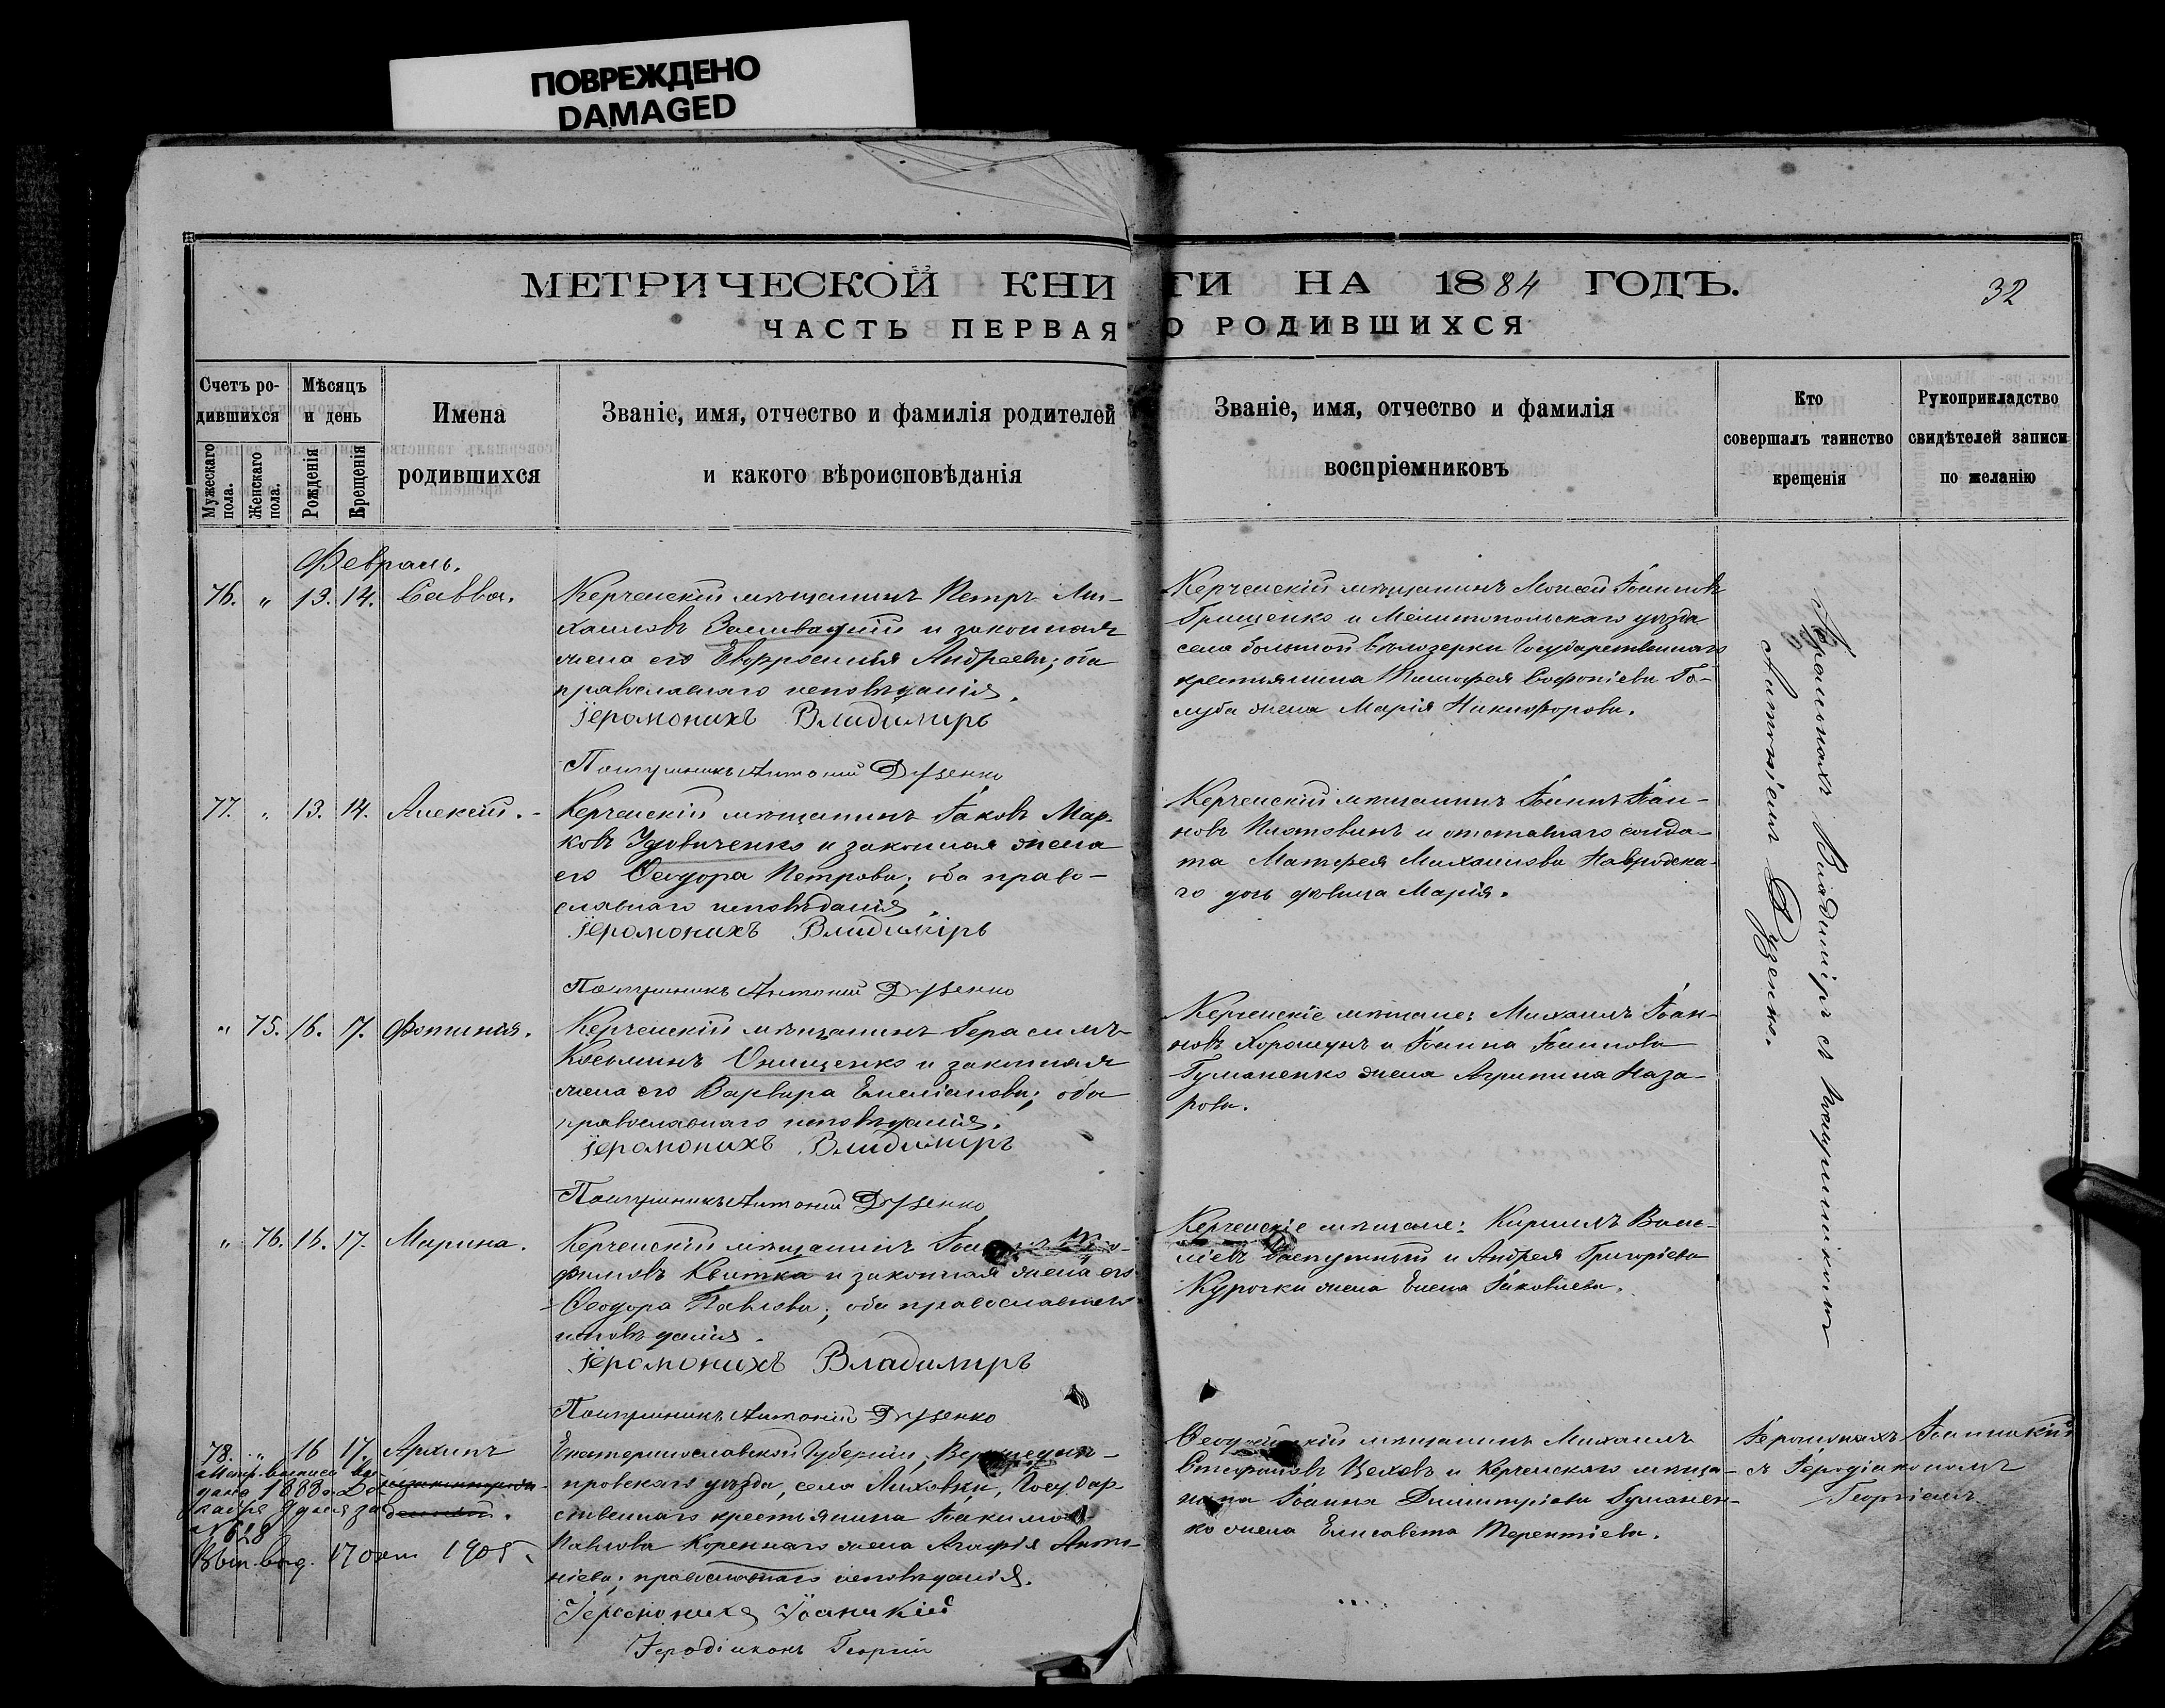 ПОВРЕЖДЕНО
DAMAGED
МЕТРИЧЕСКОЙ КНИГИ НА 1884 ГОДЪ.
32
ЧАСТЬ ПЕРВАЯ О РОДИВШИХСЯ
Счетъ ро-
дившихся
Мужескаго пола.
Женскаго пола.
Мѣсяцъ
и день
Рожденія
Крещенія
Имена
родившихся
Званіе, имя, отчество и фамилія родителей
и какого вѣроисповѣданія
Званіе, имя, отчество и фамилія
воспріемниковъ
Кто
совершалъ таинство
крещенія
Рукоприкладство
свидѣтелей записи
по желанію
Февраль.
76. " 13. 14. Савва.
Керченскій мѣщанинъ Петръ Ми-
хаиловъ и законная
жена его Евфросинія Андреева; оба
православнаго исповѣданія.
Іеромонахъ Владимиръ
Антоній Дузенко
Керченскій мѣщанинъ Моисей Іоанновъ
Грищенко и Мелитопольскаго уѣзда
села большой Бѣлозерки Государственнаго
крестьянина Тимофея Софоніева Го-
луба жена Марія Никифорова.
77. " 13. 14. Алексій.
Керченскій мѣщанинъ Іаковъ Мар-
ковъ Удовиченко и законная жена
его Ѳеодора Петрова; оба право-
славнаго исповѣданія.
Іеромонахъ Владимиръ
Антоній Дузенко
Керченскій мѣщанинъ Іоаннъ Іоан-
новъ и отставнаго солда-
та Матфея Михаилова Навродска-
го дочь дѣвица Марія.
" 75. 16. 17. Фотинія.
Керченскій мѣщанинъ Герасимъ
Косьминъ Онищенко и законная
жена его Варвара Емеліанова; оба
православнаго исповѣданія.
Іеромонахъ Владимиръ
Антоній Дузенко
Керченскіе мѣщане: Михаилъ Іоан-
новъ Хорошунъ и Іоанна Іоаннова
Гуманенко жена Агрипина Наза-
рова.
" 76. 16. 17. Марина.
Керченскій мѣщанинъ
фимовъ Квитка и законная жена его
Ѳеодора Павлова; оба православнаго
исповѣданія.
Іеромонахъ Владимиръ
Антоній Дузенко
Керченскіе мѣщане: Кириллъ Васи-
ліевъ и Андрея Григоріева
Курочки жена Елена Іаковлева.
Іеромонахъ Владимиръ съ
Антоніемъ Дузенко.
78. " 16 17. Архипъ
Екатеринославской Губерніи,
провскаго уѣзда, села Лиховки, Государ-
ственнаго крестьянина Іакима
Павлова Кореннаго жена Агафія Анто-
ніева; православнаго исповѣданія.
Іеромонахъ Іоаникій
Іеродіаконъ Георгій
мѣщанинъ Михаилъ
Стефановъ Цеховъ и Керченскаго мѣща-
нина Іоанна Димитріева Гуманен-
ко жена Елисавета Терентіева.
Іеромонахъ Іоанникій
съ Іеродіакономъ
Георгіемъ
1888
№ 628
17 окт 1905